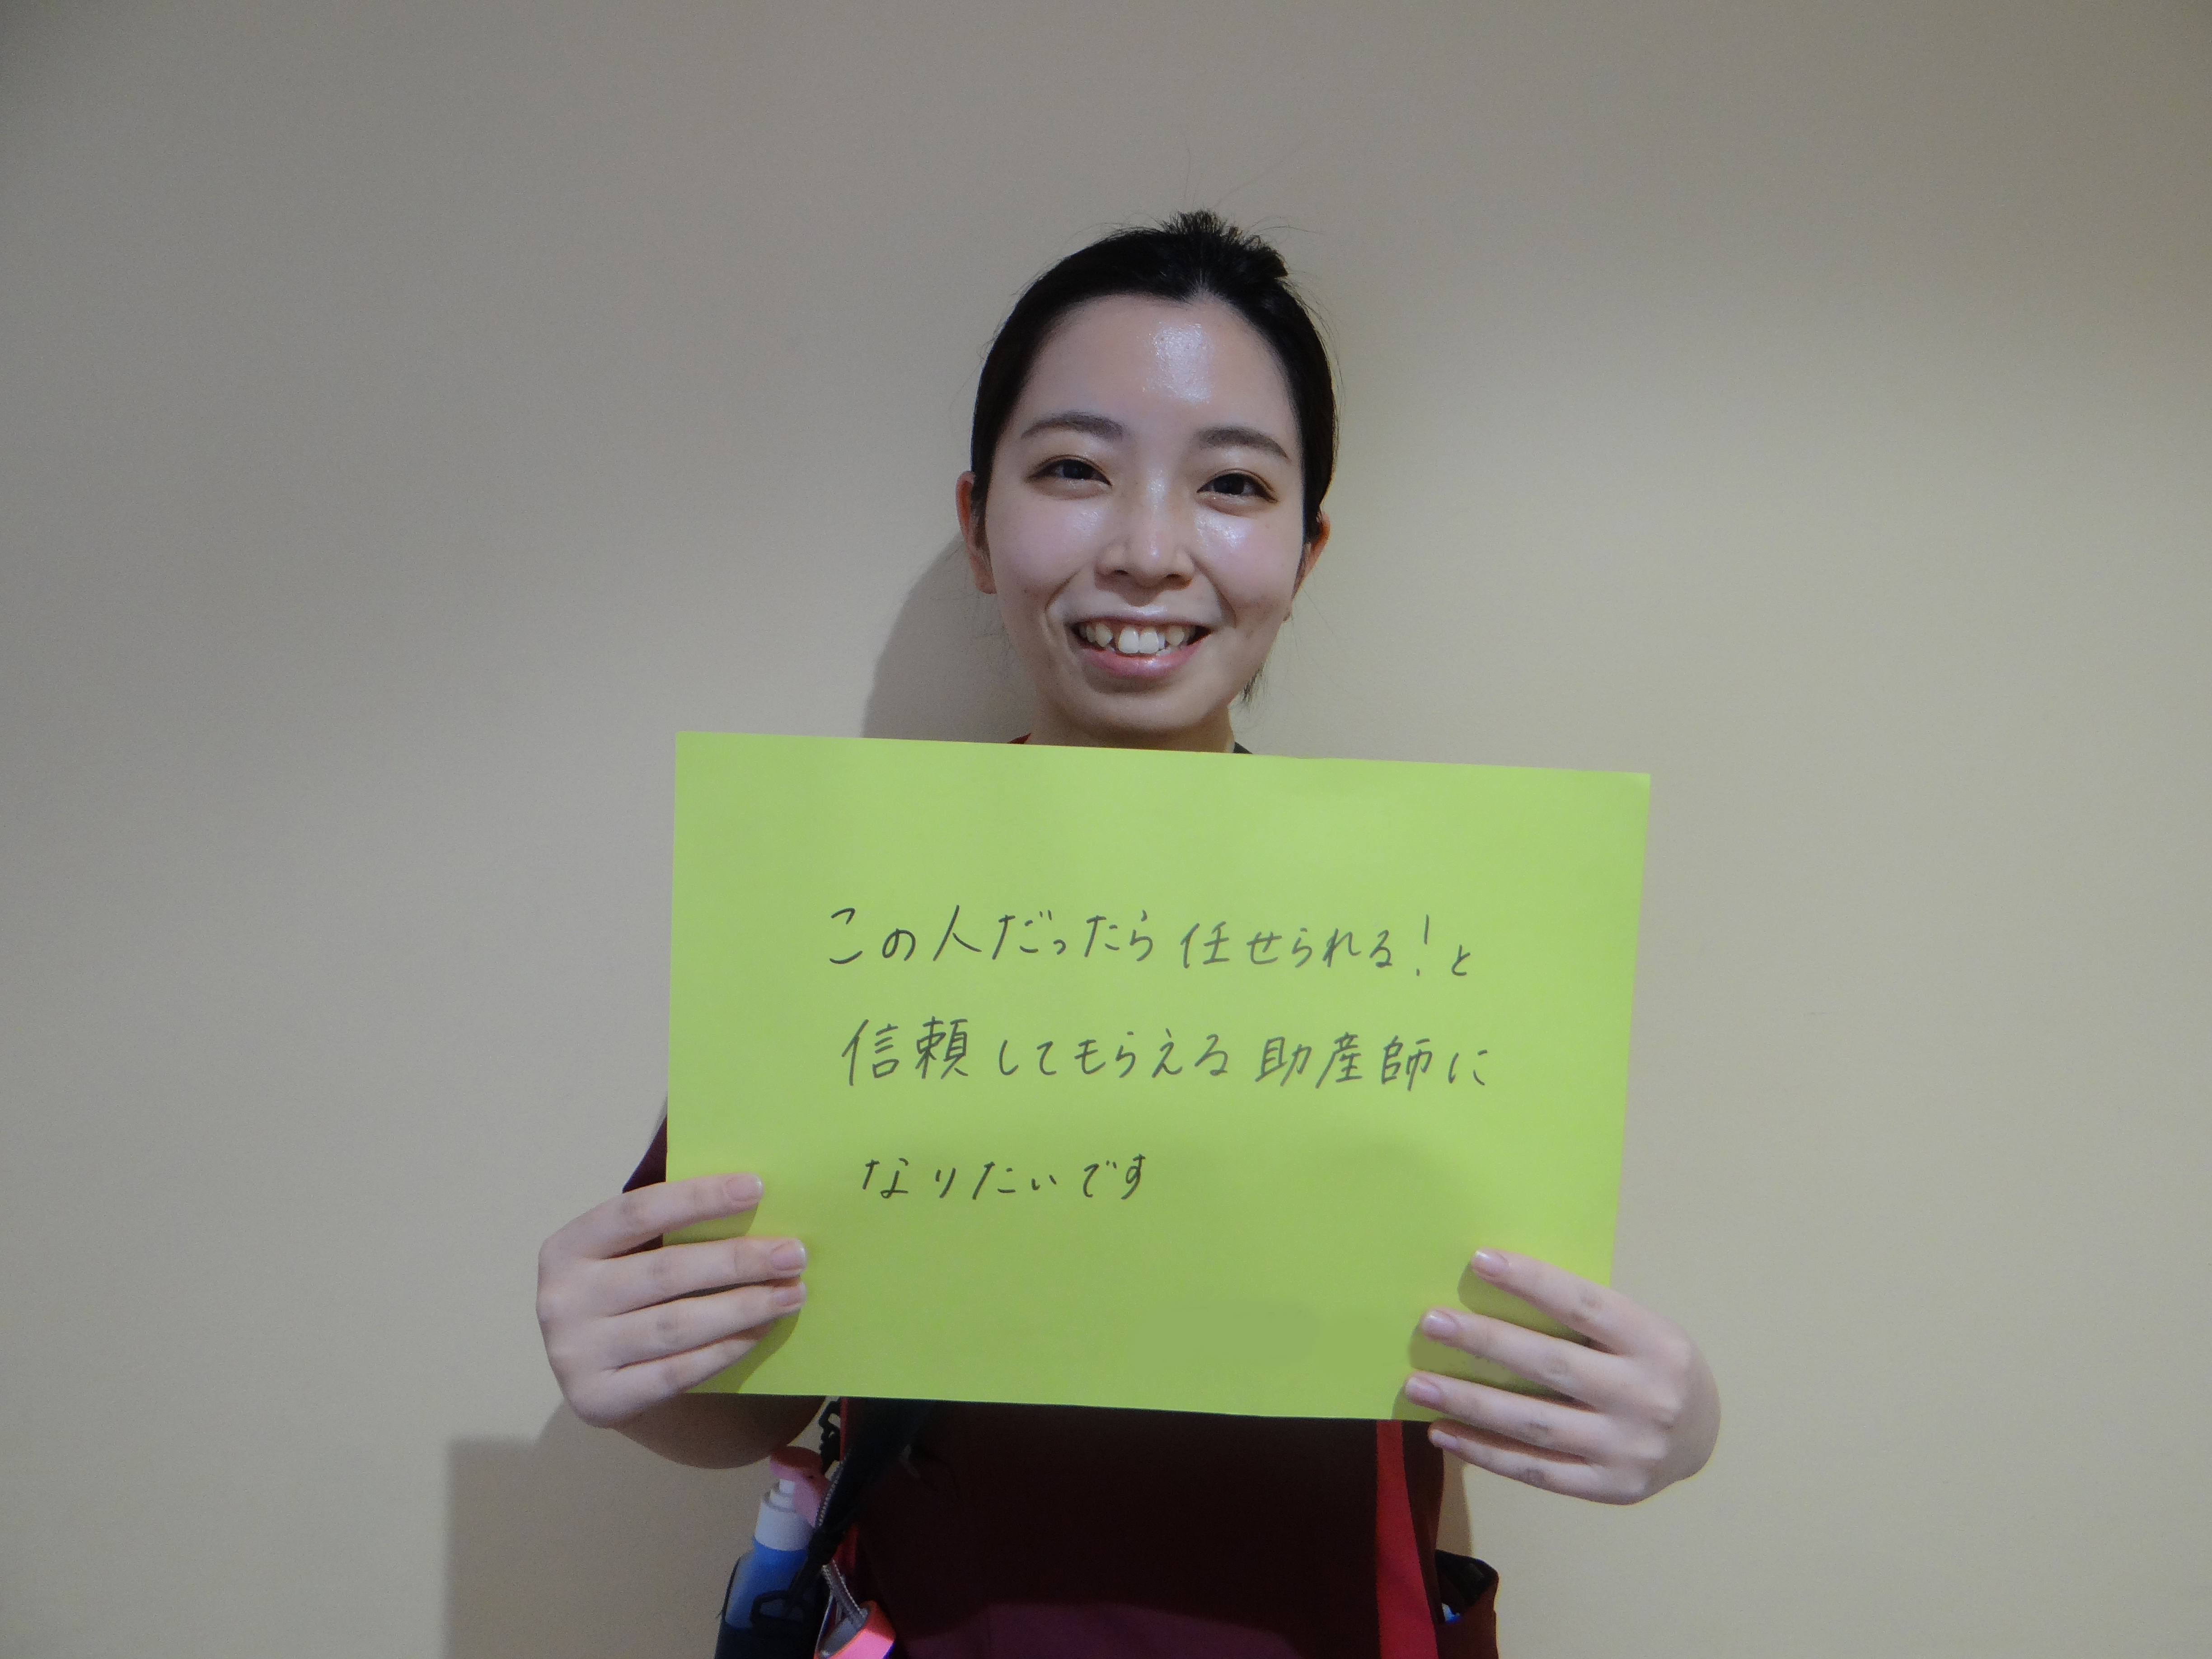 この人だったら任せられる!と
信頼してもらえる助産師に
なりたいです